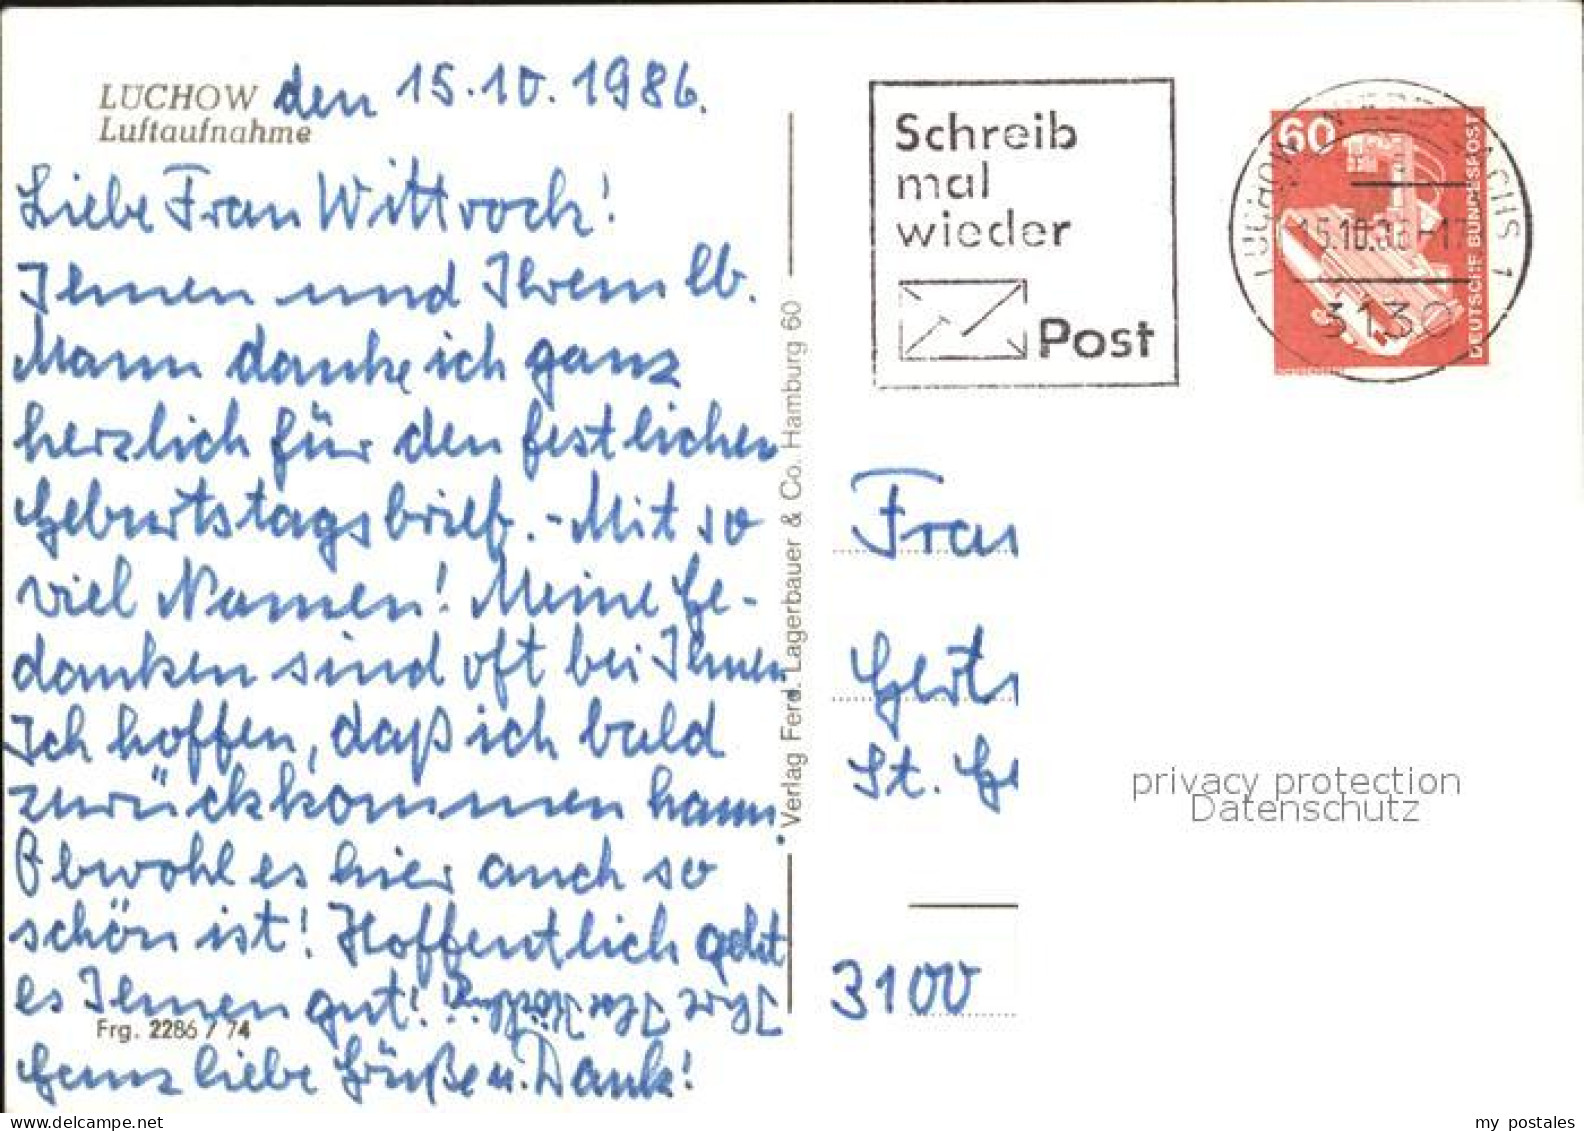 LÜCHOW
Luftaufnahme
den 15.10.1986.
Liebe Frau Wittrock!
Ihnen und Ihrem lb.
Mann danke ich ganz
herzlich für den festlichen
Geburtstagsbrief. - Mit so
viel Namen! Meine Ge-
danken sind oft bei Ihnen.
Ich hoffen, daß ich bald
zurückkommen kann.
Obwohl es hier auch so
schön ist! Hoffentlich geht
es Ihnen gut!
Ganz liebe Grüße u. Dank!
Frg. 2286 / 74
Verlag Ferd. Lagerbauer & Co. Hamburg 60
Schreib
mal
wieder
Post
60
DEUTSCHE BUNDESPOST
LÜCHOW
15.10.86-17
3130
Frau
St.
3100
privacy protection
Datenschutz
my postales